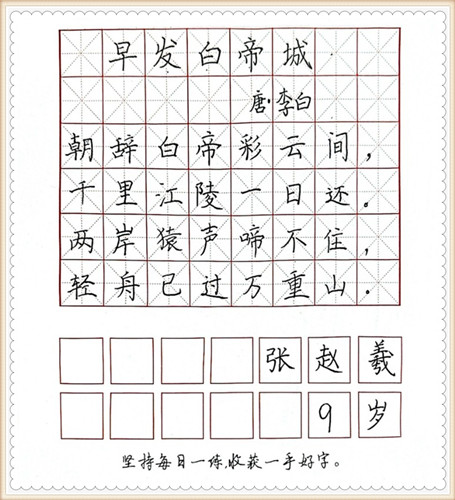 早发白帝城
唐·李白
朝辞白帝彩云间，
千里江陵一日还。
两岸猿声啼不住，
轻舟已过万重山.
张赵羲
9岁
坚持每日一练,收获一手好字。